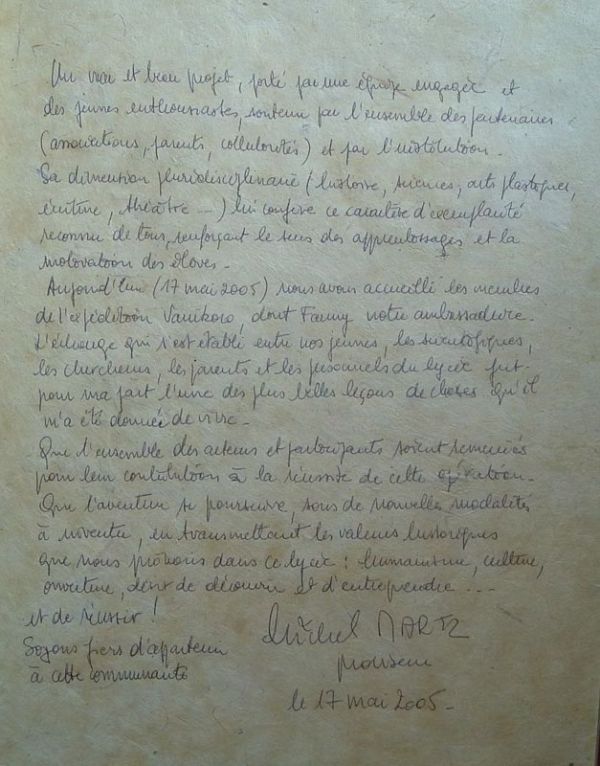 Un vrai et beau projet, porté par une équipe engagée et
des jeunes enthousiastes, soutenu par l'ensemble des partenaires
(associations, parents, collectivités) et par l'institution.
Sa dimension pluridisciplinaire (histoire, sciences, arts plastiques,
écriture, théâtre ---) lui confère ce caractère d'exemplarité
reconnu de tous, renforçant le sens des apprentissages et la
motivation des élèves -
Aujourd'hui (17 mai 2005) nous avons accueilli les membres
de l'expédition Vanikoro, dont Fanny notre ambassadrice.
L'échange qui s'est établi entre nos jeunes, les scientifiques,
les chercheurs, les parents et les personnels du lycée fut
pour ma part l'une des plus belles leçons de choses qu'il
m'a été donnée de vivre -
Que l'ensemble des acteurs et participants soient remerciés
pour leur contribution à la réussite de cette opération -
Que l'aventure se poursuive, sous de nouvelles modalités
à inventer, en transmettant les valeurs historiques
que nous prônons dans ce lycée : humanisme, culture,
ouverture, désir de découvrir et d'entreprendre ---
et de réussir !
Soyons fiers d'appartenir
à cette communauté
Michel MARTZ
proviseur
le 17 mai 2005 -